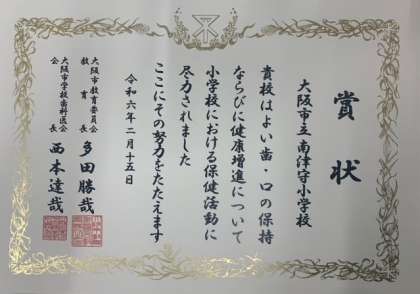 賞状
大阪市立南津守小学校
貴校はよい歯・口の保持
ならびに健康増進について
小学校における保健活動に
尽力されました
ここにその努力をたたえます
令和六年二月十五日
大阪市教育委員会
教育長 多田勝哉
大阪市学校歯科医会
会長 西本達哉